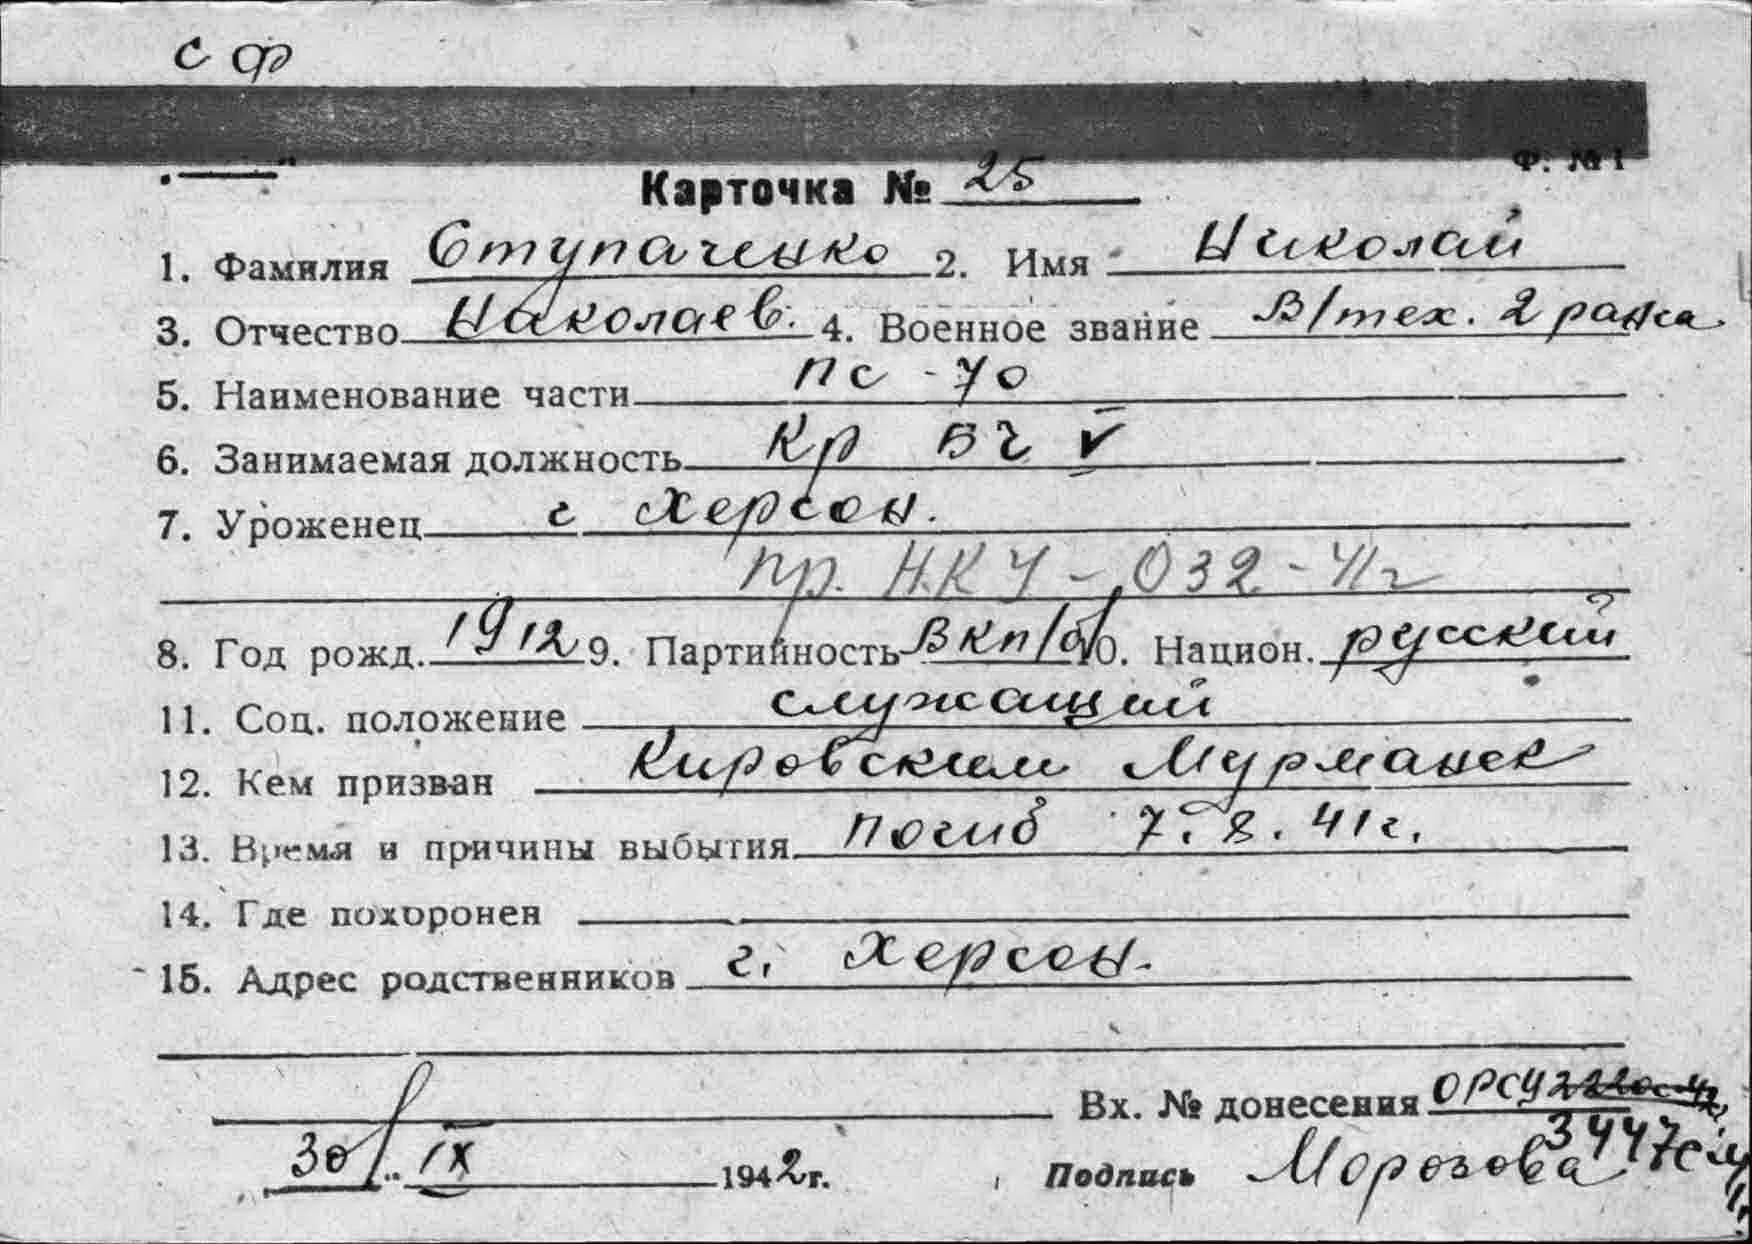 С Ф
Ф. № 1
Карточка № 25
1. Фамилия Ступаченко 2. Имя Николай
3. Отчество Николаев. 4. Военное звание В/тех. 2 ранга
5. Наименование части ПС-70
6. Занимаемая должность Кр БЧ V
7. Уроженец г Херсон.
пр. НКУ-032-41г
8. Год рожд. 1912 9. Партийность ВКП/б/ 10. Национ. русский
11. Соц. положение служащий
12. Кем призван Кировским Мурманск
13. Время и причины выбытия погиб 7.8.41г.
14. Где похоронен
15. Адрес родственников г. Херсон.
Вх. № донесения ОРСУ
3447с
30 IX 1942г. Подпись Морозова